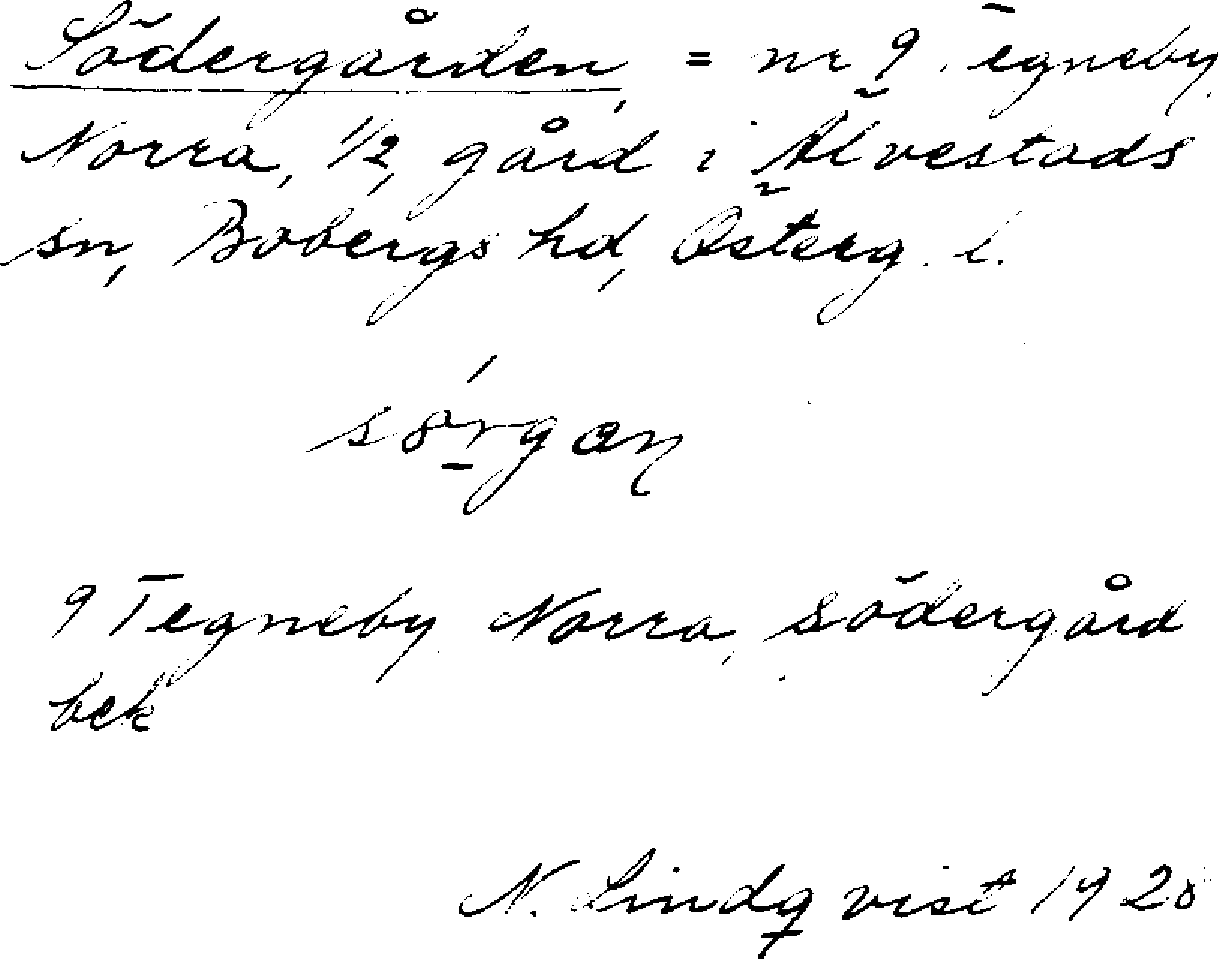 Södergården, = nr 9 Tegneby
Norra, 1/2, gård i Älvestads
sn, Bobergs hd, Österg. l.
sórgan
9 Tegneby Norra, södergård
bek
N. Lindqvist 1928